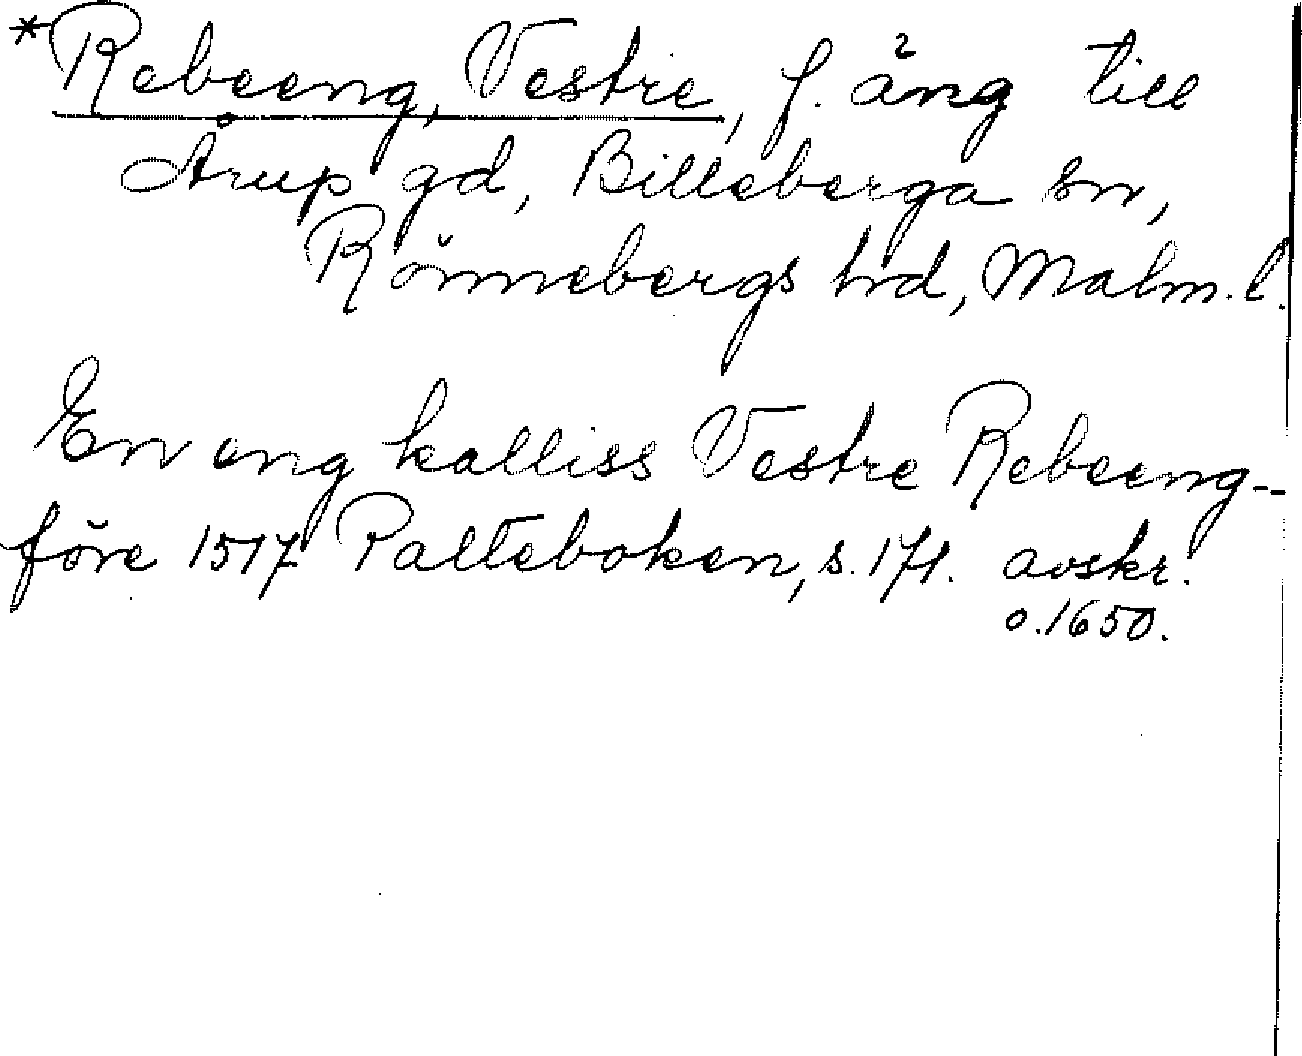 *Rebeeng, Vestre, f. äng till
Årup gd, Billeberga sn,
Rönnebergs hd, Malm. l.
En eng kalliss Vestre Rebeeng -
före 1517 Palteboken, s. 171. avskr.
o. 1650.